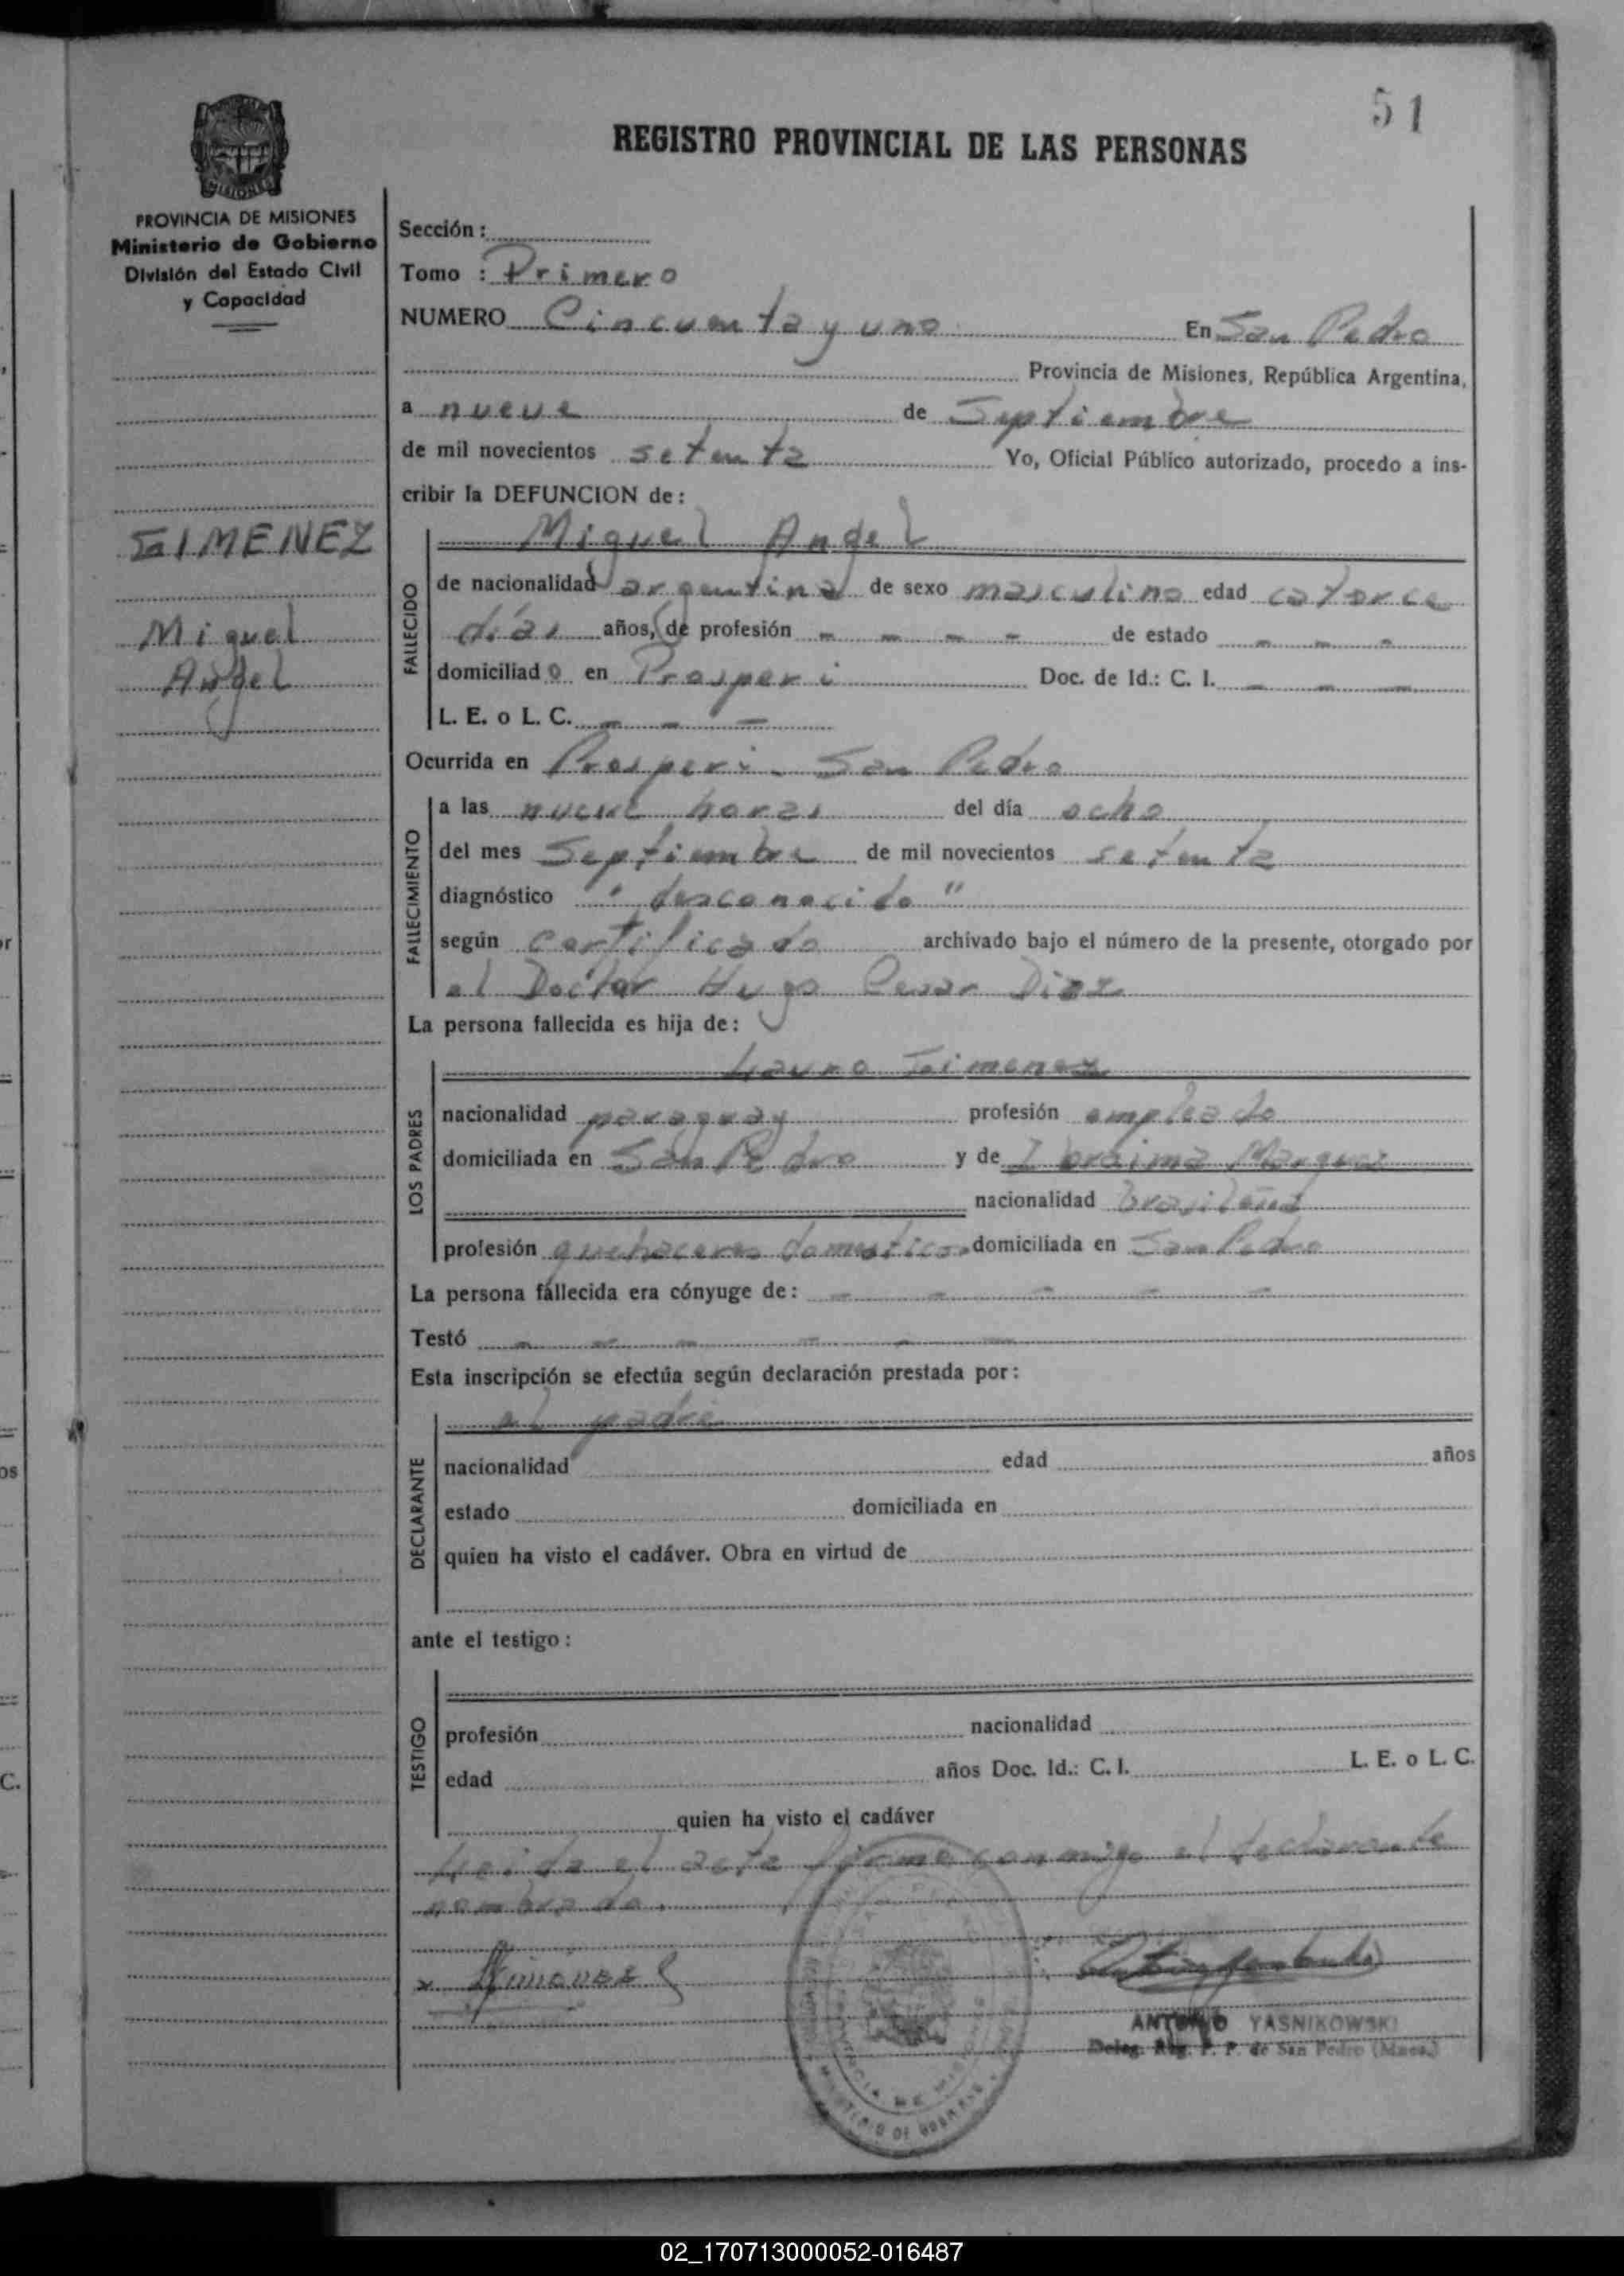 51
REGISTRO PROVINCIAL DE LAS PERSONAS
MISIONES
PROVINCIA DE MISIONES
Ministerio de Gobierno
División del Estado Civil
y Capacidad
GIMENEZ
Miguel
Angel
Sección :
Tomo : Primero
NUMERO Cincuenta y uno En San Pedro
Provincia de Misiones, República Argentina,
a nueve de Septiembre
de mil novecientos setenta Yo, Oficial Público autorizado, procedo a ins-
cribir la DEFUNCION de :
FALLECIDO
Miguel Angel
de nacionalidad argentina de sexo masculino edad catorce
días años, de profesión - - - - de estado - - -
domiciliado en Prosperi Doc. de Id.: C. I. - - -
L. E. o L. C. - - -
Ocurrida en Prosperi - San Pedro
FALLECIMIENTO
a las nueve horas del día ocho
del mes Septiembre de mil novecientos setenta
diagnóstico "desconocido"
según certificado archivado bajo el número de la presente, otorgado por
el Doctor Hugo Cesar Diaz
La persona fallecida es hija de :
LOS PADRES
Lauro Gimenez
nacionalidad paraguay profesión empleado
domiciliada en San Pedro y de Ibraima Marquez
nacionalidad brasileña
profesión quehaceres domesticos domiciliada en San Pedro
La persona fallecida era cónyuge de : - - - - -
Testó - - - - - -
Esta inscripción se efectúa según declaración prestada por :
DECLARANTE
el padre
nacionalidad edad años
estado domiciliada en
quien ha visto el cadáver. Obra en virtud de
ante el testigo :
TESTIGO
profesión nacionalidad
edad años Doc. Id.: C. I. L. E. o L. C.
quien ha visto el cadáver
Leida el acta firma conmigo el declarante
nombrado.
x Gimenez
ANTONIO YASNIKOWSKI
Deleg. Reg. P. P. de San Pedro (Mnes.)
02_170713000052-016487